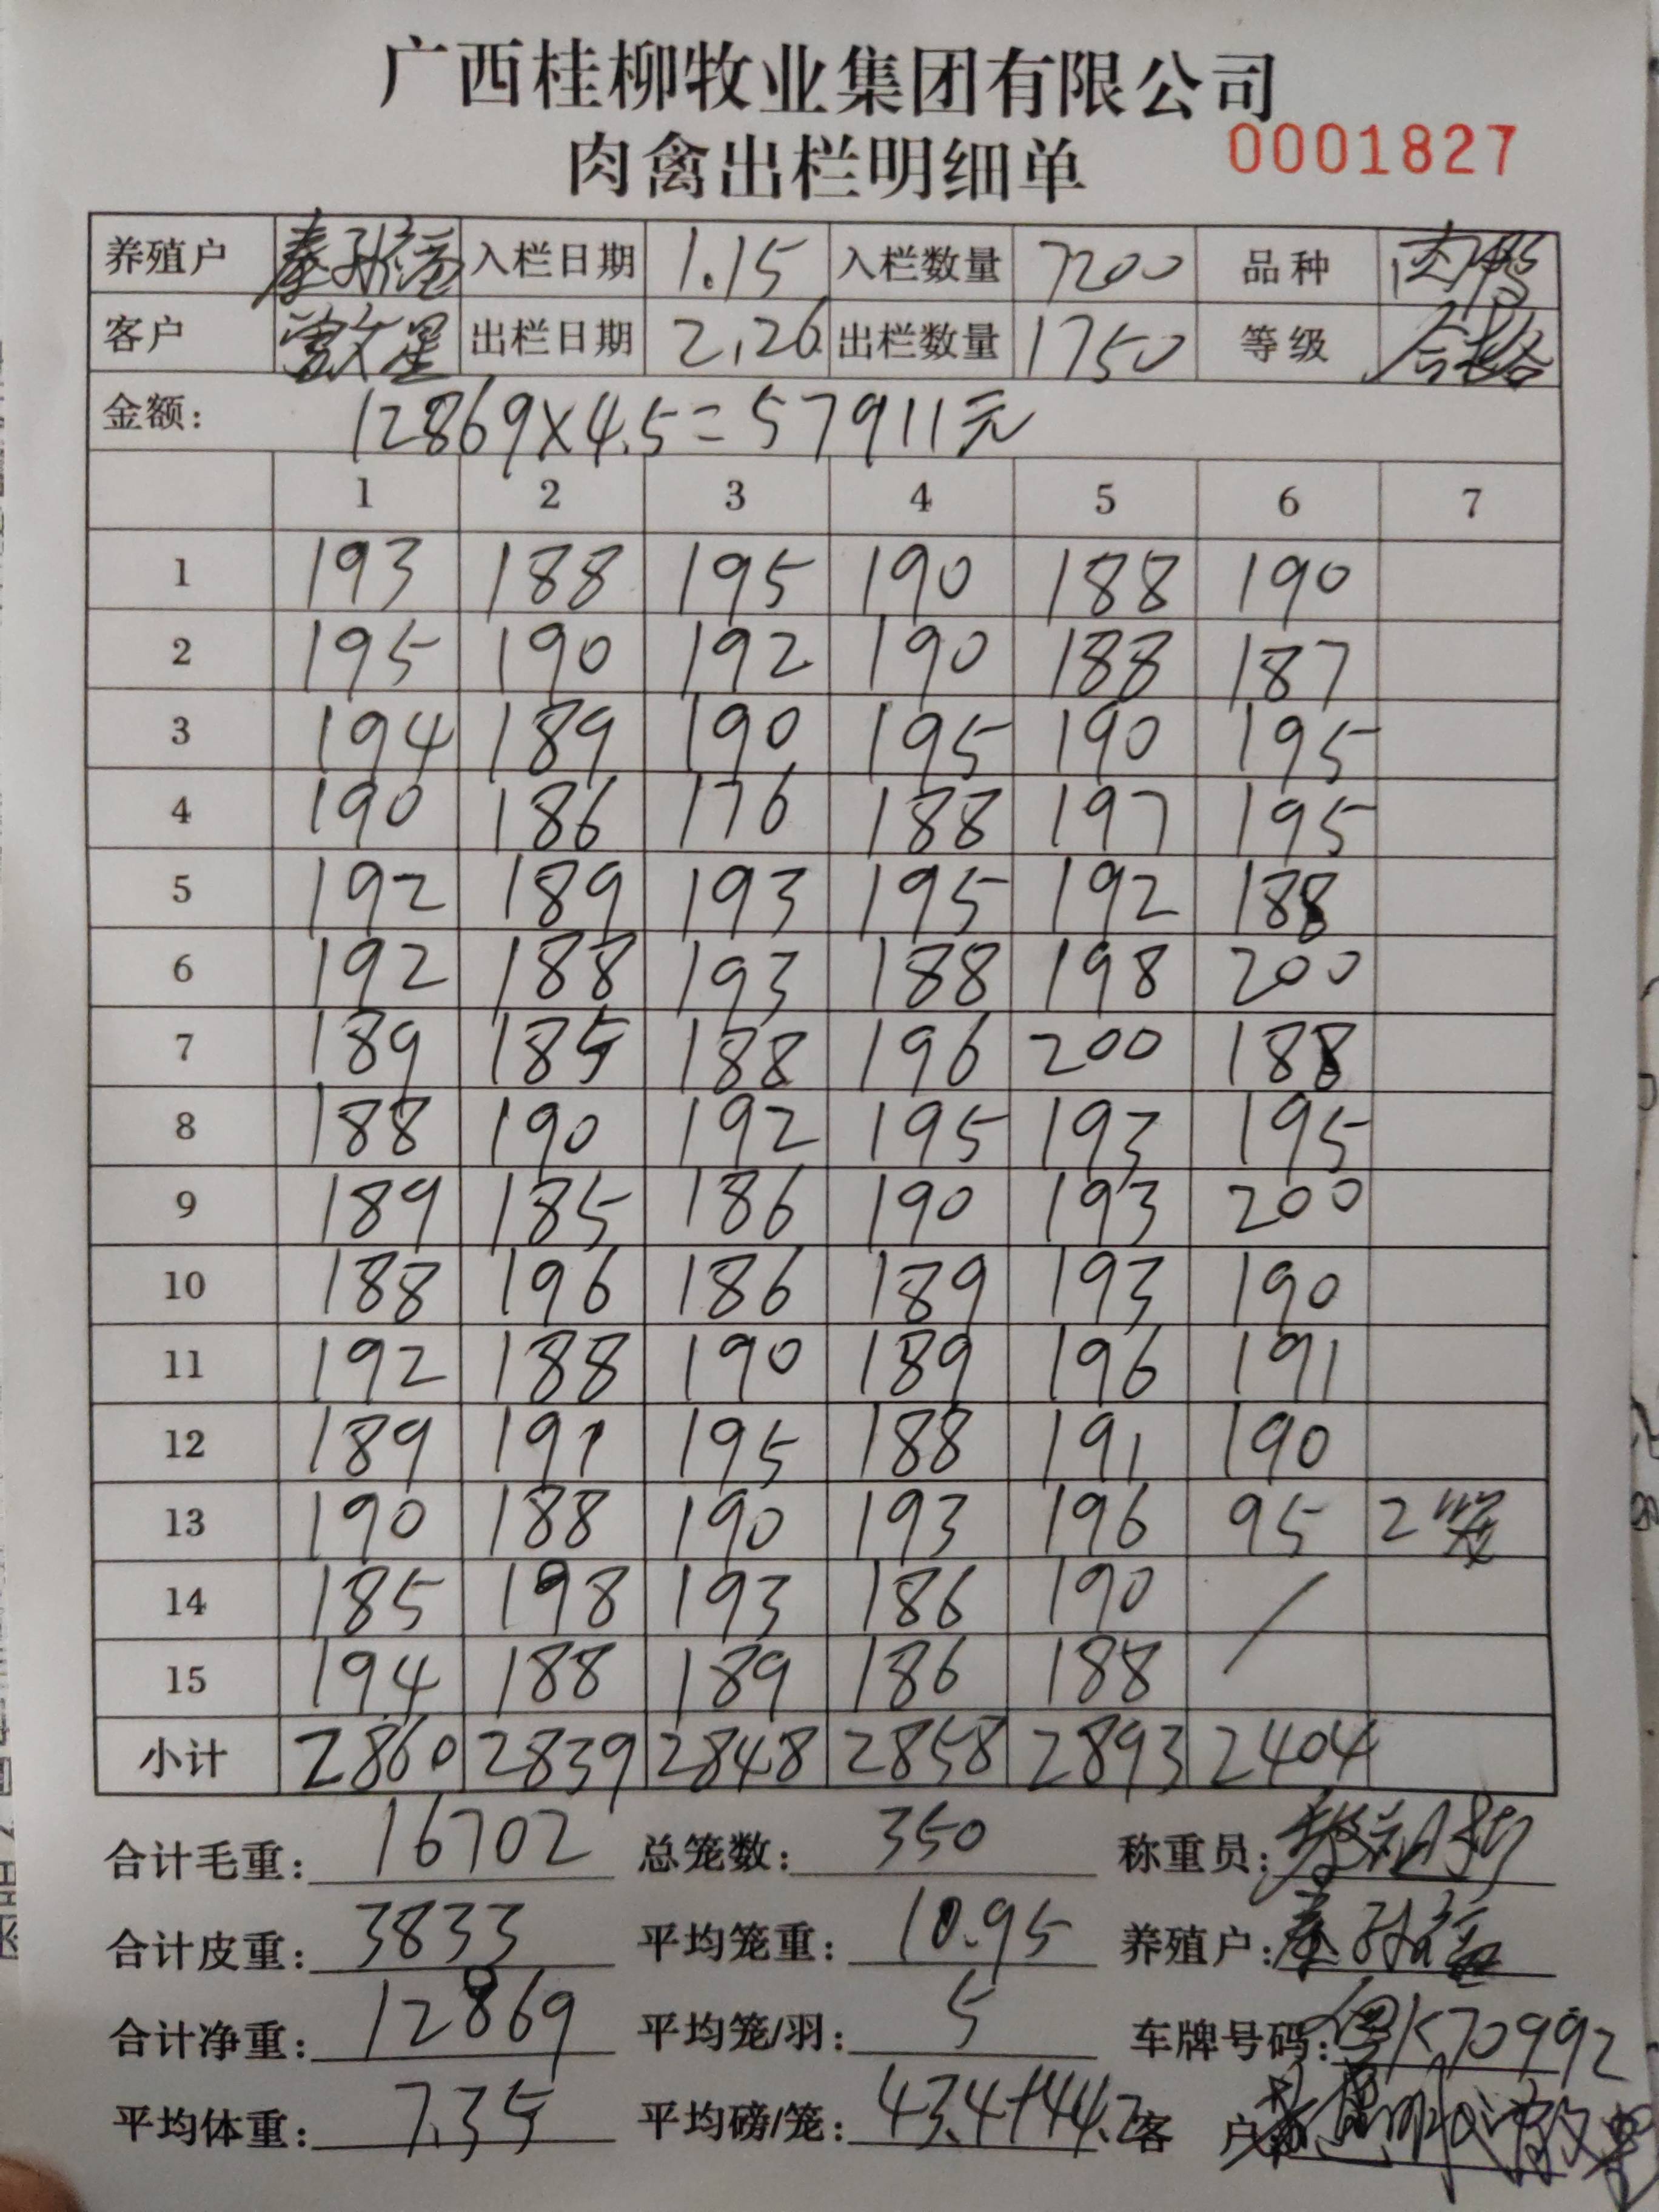 广西桂柳牧业集团有限公司
肉禽出栏明细单 0001827
养殖户 秦 入栏日期 1.15 入栏数量 7200 品种 肉鸭
客户 星 出栏日期 2.26 出栏数量 1750 等级 合格
金额: 12869×4.5=57911元
1 2 3 4 5 6 7
1 193 188 195 190 188 190
2 195 190 192 190 188 187
3 194 189 190 195 190 195
4 190 186 176 188 197 195
5 192 189 193 195 192 188
6 192 188 193 188 198 200
7 189 185 188 196 200 188
8 188 190 192 195 193 195
9 189 185 186 190 193 200
10 188 196 186 189 193 190
11 192 188 190 189 196 191
12 189 191 195 188 191 190
13 190 188 190 193 196 95 2笼
14 185 198 193 186 190 /
15 194 188 189 186 188
小计 2860 2839 2848 2858 2893 2404
合计毛重: 16702 总笼数: 350 称重员:
合计皮重: 3833 平均笼重: 10.95 养殖户: 秦
合计净重: 12869 平均笼/羽: 5 车牌号码: 粤K70992
平均体重: 7.35 平均磅/笼: 43.4+44.2 客 户